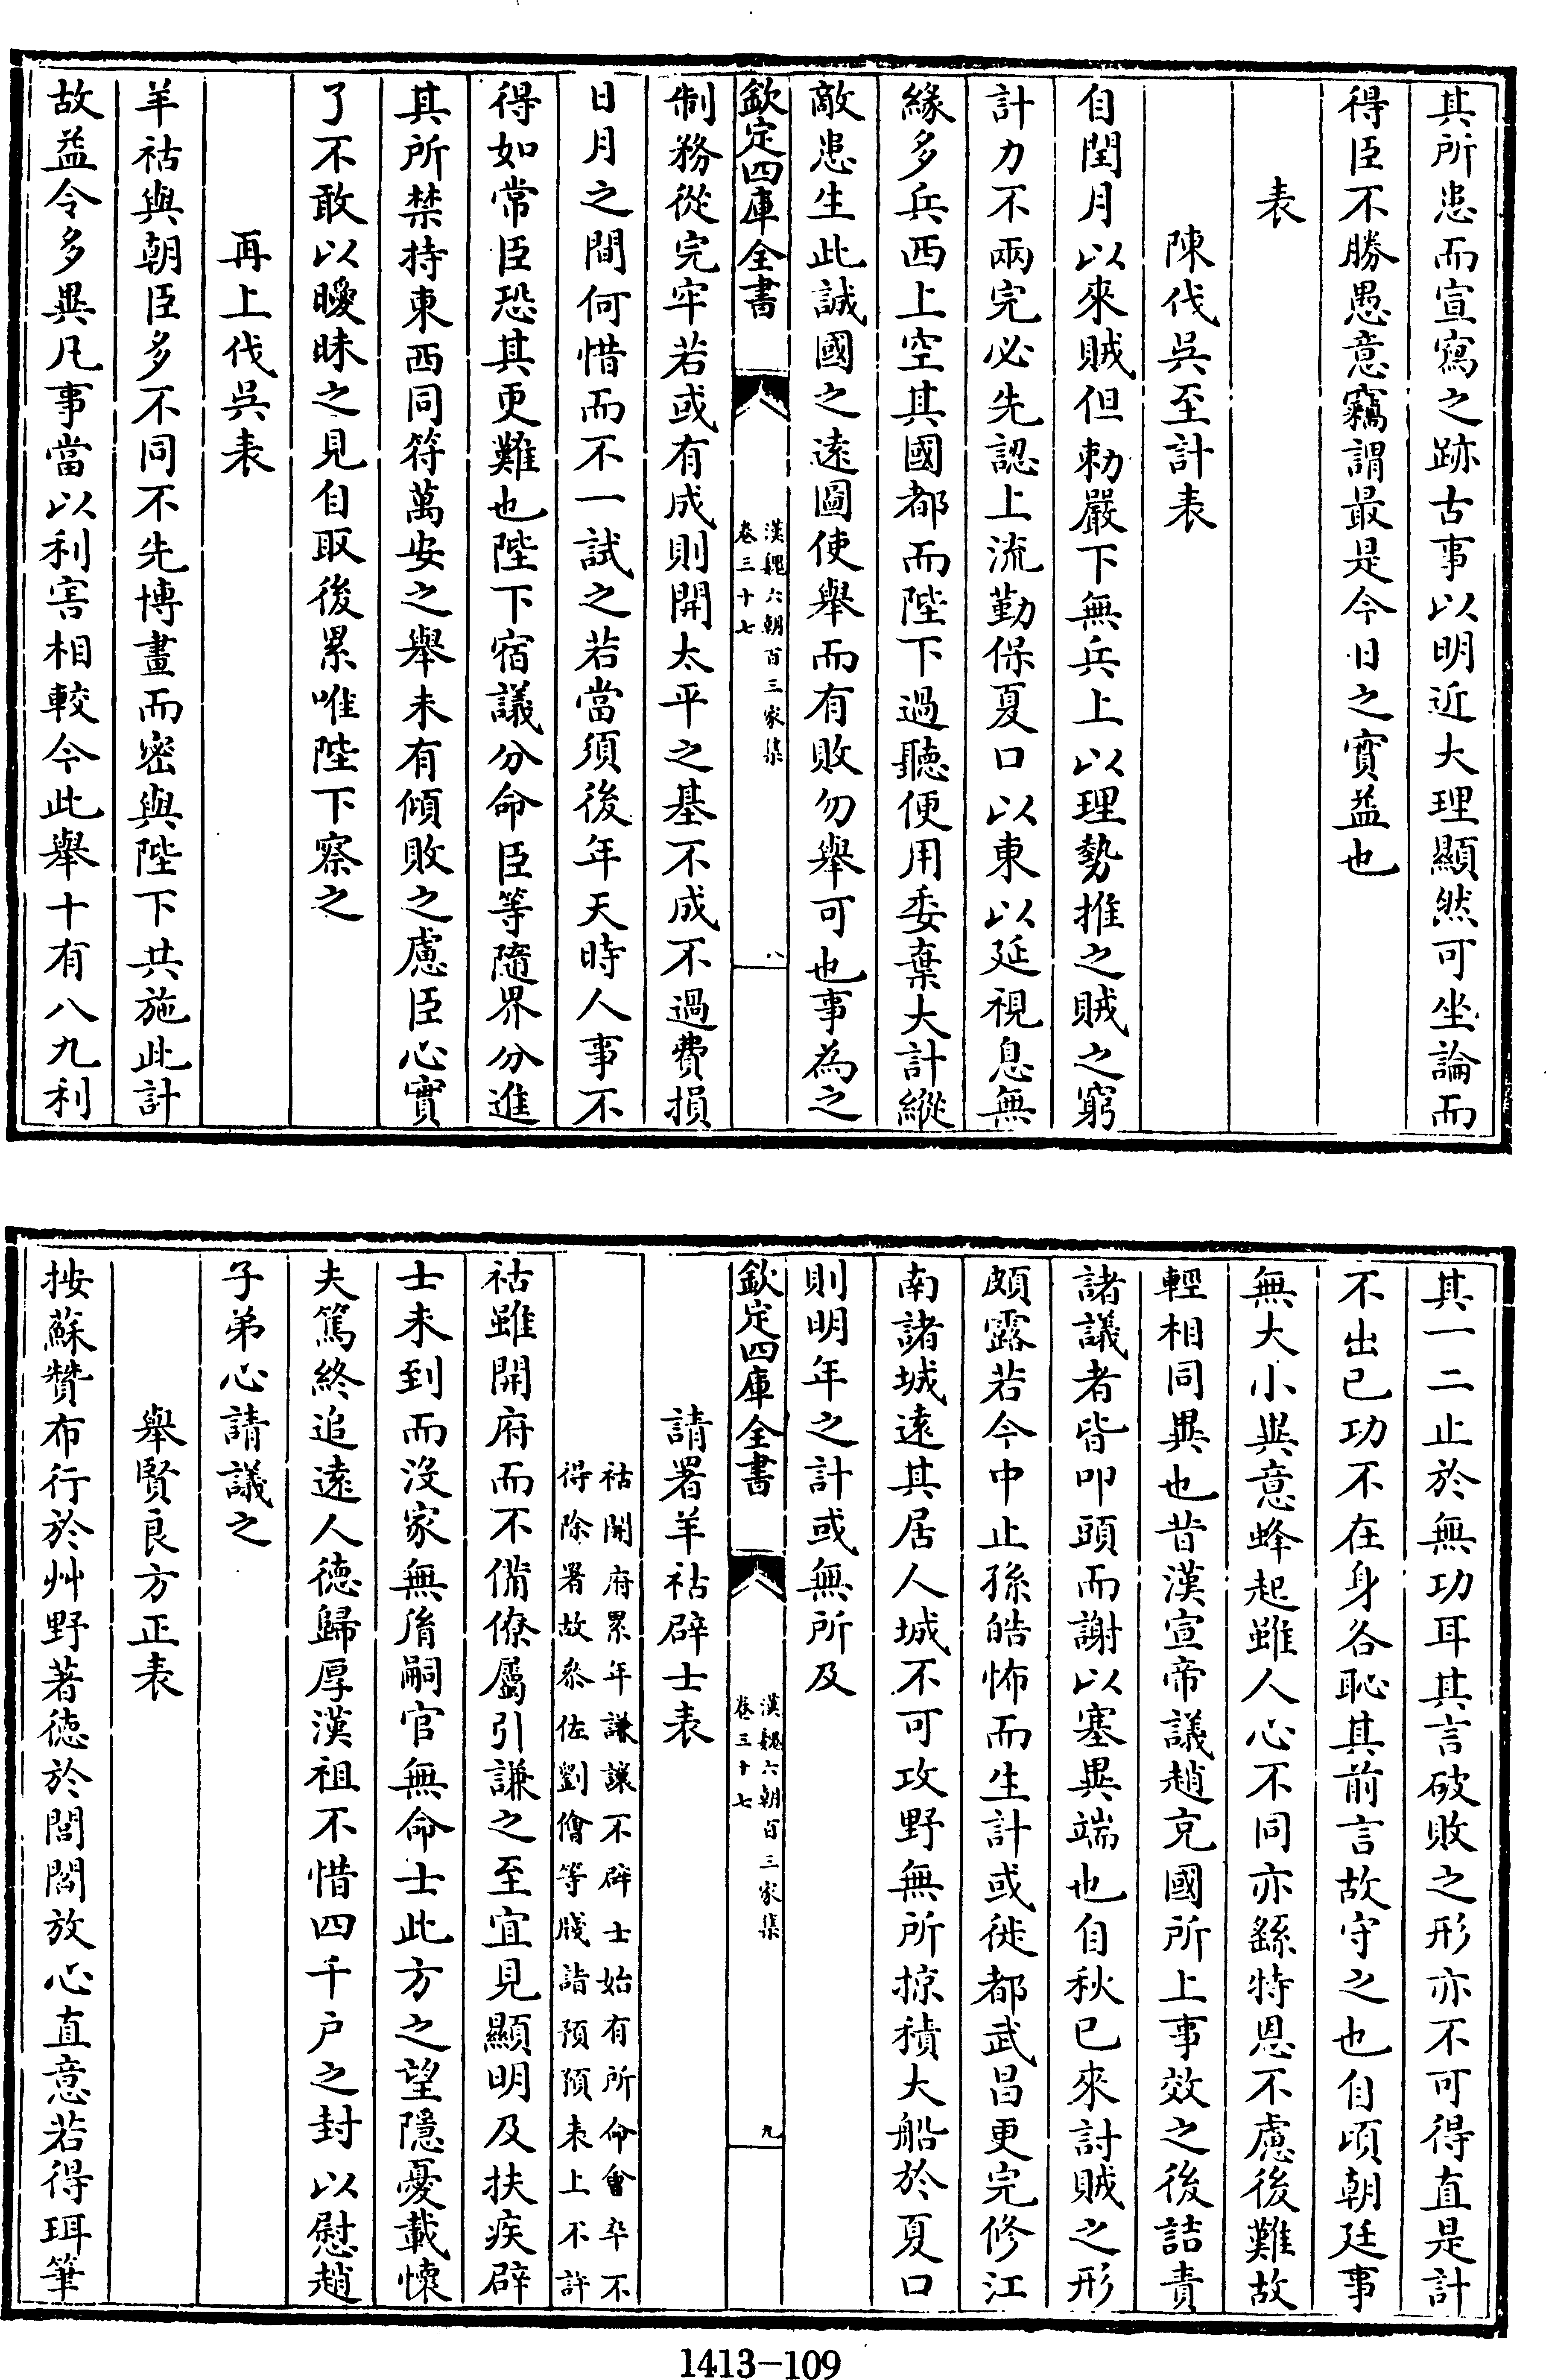 其所患而宣寫之跡古事以明近大理顯然可坐論而
得臣不勝愚意竊謂最是今日之實益也
表
陳伐吳至計表
自閏月以來賊但勅嚴下無兵上以理勢推之賊之窮
計力不兩完必先認上流勤保夏口以東以延視息無
緣多兵西上空其國都而陛下過聽便用委棄大計縱
敵患生此誠國之遠圖使舉而有敗勿舉可也事為之
欽定四庫全書
漢魏六朝百三家集
卷三十七
八
制務從完牢若或有成則開太平之基不成不過費損
日月之間何惜而不一試之若當須後年天時人事不
得如常臣恐其更難也陛下宿議分命臣等隨界分進
其所禁持東西同符萬安之舉未有傾敗之慮臣心實
了不敢以曖昧之見自取後累唯陛下察之
再上伐吳表
羊祜與朝臣多不同不先博畫而密與陛下共施此計
故益令多異凡事當以利害相較今此舉十有八九利
其一二止於無功耳其言破敗之形亦不可得直是計
不出已功不在身各恥其前言故守之也自頃朝廷事
無大小異意蜂起雖人心不同亦繇恃恩不慮後難故
輕相同異也昔漢宣帝議趙充國所上事效之後詰責
諸議者皆叩頭而謝以塞異端也自秋已來討賊之形
頗露若今中止孫皓怖而生計或徙都武昌更完修江
南諸城遠其居人城不可攻野無所掠積大船於夏口
則明年之計或無所及
欽定四庫全書
漢魏六朝百三家集
卷三十七
九
請署羊祜辟士表
祜開府累年謙讓不辟士始有所命會卒不
得除署故叅佐劉儈等牋詣預預表上不許
祜雖開府而不備僚屬引謙之至宜見顯明及扶疾辟
士未到而沒家無胤嗣官無命士此方之望隱憂載懷
夫篤終追遠人德歸厚漢祖不惜四千户之封以慰趙
子弟心請議之
舉賢良方正表
按蘇贊布行於艸野著徳於閭閻放心直意若得珥筆
1413-109